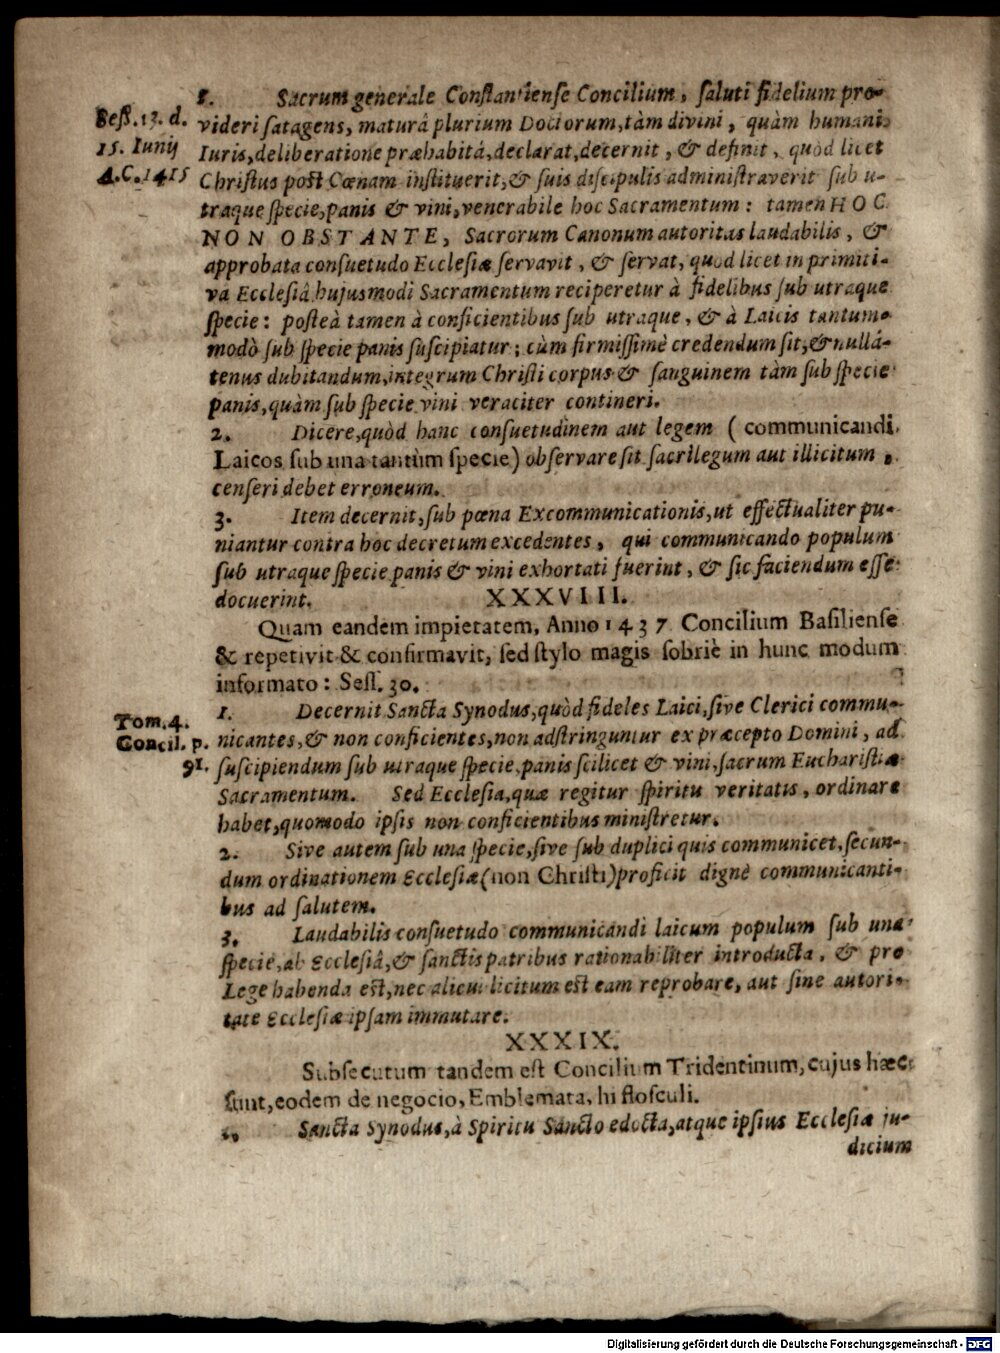 1. Sacrum generale Constantiense Concilium, saluti fidelium pro-
videri satagens, maturâ plurium Doctorum, tàm divini, quàm humani
Iuris, deliberatione præhabitâ, declarat, decernit, & definit, quòd licet
Christus post Cœnam instituerit, & suis discipulis administraverit sub u-
traque specie, panis & vini, venerabile hoc Sacramentum: tamen HOC
NON OBSTANTE, Sacrorum Canonum autoritas laudabilis, &
approbata consuetudo Ecclesiæ servavit, & servat, quod licet in primiti-
vâ Ecclesiâ hujusmodi Sacramentum reciperetur à fidelibus sub utraque
specie: posteà tamen à conficientibus sub utraque, & à Laicis tantum-
modò sub specie panis suscipiatur; cùm firmissimè credendum sit, & nullâ-
tenus dubitandum, integrum Christi corpus & sanguinem tàm sub specie
panis, quàm sub specie vini veraciter contineri.
Sess. 13. d.
15. Iunij
A.C. 1415
2. Dicere, quòd hanc consuetudinem aut legem (communicandi
Laicos sub una tantùm specie) observare sit sacrilegum aut illicitum,
censeri debet erroneum.
3. Item decernit, sub pœna Excommunicationis, ut effectualiter pu-
niantur contra hoc decretum excedentes, qui communicando populum
sub utraque specie panis & vini exhortati fuerint, & sic faciendum esse
docuerint. XXXVIII.
Quam eandem impietatem, Anno 1437 Concilium Basiliense
& repetivit & confirmavit, sed stylo magis sobriè in hunc modum
informato: Sess. 30.
1. Decernit Sancta Synodus, quòd fideles Laici, sive Clerici commu-
nicantes, & non conficientes, non adstringuntur ex præcepto Domini, ad
suscipiendum sub utraque specie, panis scilicet & vini, sacrum Eucharistiæ
Sacramentum. Sed Ecclesia, quæ regitur spiritu veritatis, ordinare
habet, quomodo ipsis non conficientibus ministretur.
Tom. 4.
Concil. p.
91.
2. Sive autem sub una specie, sive sub duplici quis communicet, secun-
dum ordinationem Ecclesiæ (non Christi) proficit dignè communicanti-
bus ad salutem.
3. Laudabilis consuetudo communicandi laicum populum sub una
specie, ab Ecclesiâ, & sanctis patribus rationabiliter introducta, & pro
Lege habenda est, nec alicui licitum est eam reprobare, aut sine autori-
tate Ecclesiæ ipsam immutare.
XXXIX.
Subsecutum tandem est Concilium Tridentinum, cujus hæc
sunt, eodem de negocio, Emblemata, hi flosculi.
1. Sancta Synodus, à Spiritu Sancto edocta, atque ipsius Ecclesiæ ju-
dicium
Digitalisierung gefördert durch die Deutsche Forschungsgemeinschaft - DFG